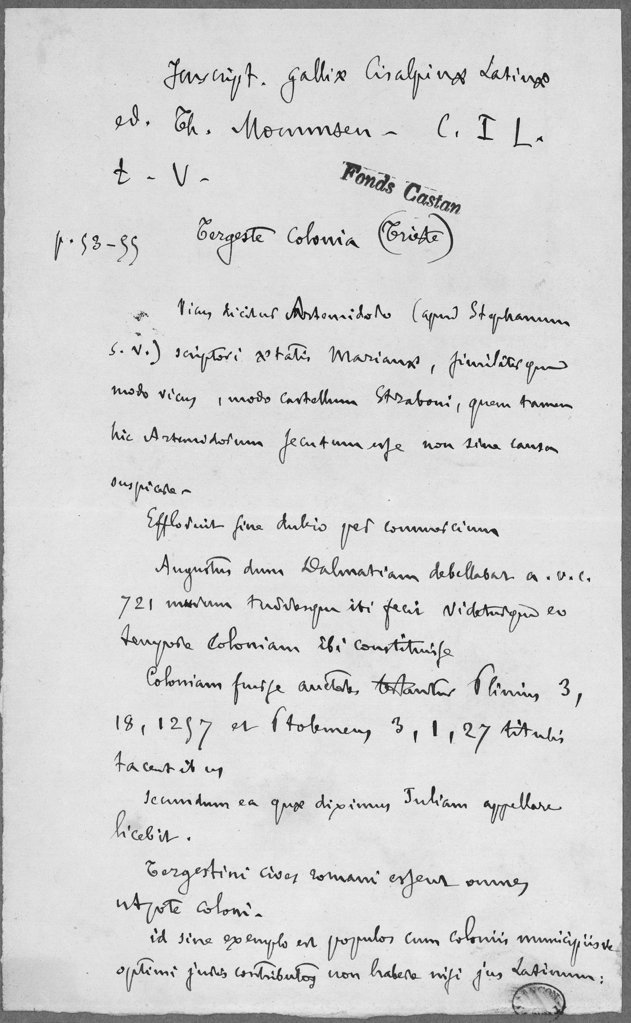 Inscript. Galliæ Cisalpinæ Latinæ
ed. Th. Mommsen - C. I L.
t - V -
Fonds Castan
p. 53-55 Tergeste Colonia (Trieste)
Vicus dicitur Artemidoro (apud Stephanum
s. v.) scriptori ætatis Marianæ, similiterque
modo vicus, modo castellum Straboni, quem tamen
hic Artemidorum secutum esse non sine causa
suspicere -
Effloruit sine dubio per commercium
Augustus dum Dalmatiam debellabat a. v. c.
721 murum turresque ibi fecit videturque eo
tempore coloniam ibi constituisse
Coloniam fuisse auctores testantur Plinius 3,
18, 1257 et Ptolemeus 3, 1, 27 titulis
tacentibus
secundum ea quæ diximus Iuliam appellare
licebit.
Tergestini cives romani essent omnes
utpote coloni -
id sine exemplo est populos cum coloniis municipiisve
optimi juris contributos non habere nisi jus Latinum: